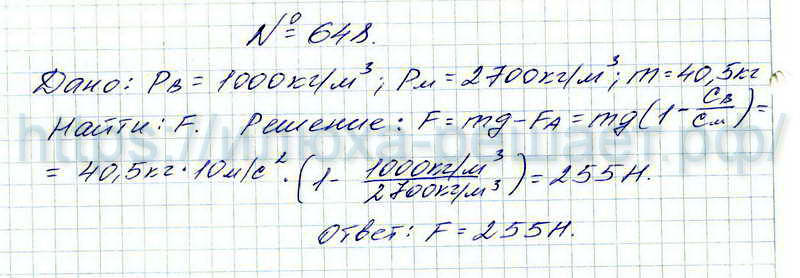 № 648.
Дано: Pв = 1000кг/м³; Pм = 2700кг/м³; m = 40,5кг
Найти: F. Решение: F = mg - FA = mg(1 - Cв/Cм) =
= 40,5кг · 10м/с² · (1 - 1000кг/м³/2700кг/м³) = 255Н.
Ответ: F = 255Н.
https://илюха-решает.рф/